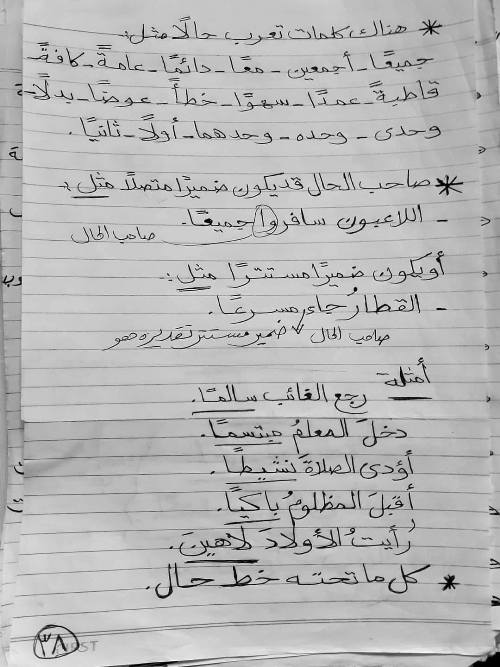 * هناك كلمات تعرب حالًا مثل :
جميعًا - أجمعين - معًا - دائمًا - عامةً - كافةً
قاطبةً - عمدًا - سهوًا - خطأً - عوضًا - بدلًا -
وحدى - وحده - وحدهما - أولًا - ثانيًا .
* صاحب الحال قد يكون ضميرًا متصلًا مثل :
- اللاعبون سافروا جميعًا .
صاحب الحال
أو يكون ضميرًا مستترًا مثل :
- القطارُ جاء مسرعًا .
صاحب الحال ضمير مستتر تقديره هو
أمثلة
رجع الغائب سالمًا .
دخلَ المعلمُ مبتسمًا .
أؤدى الصلاةَ نشيطًا .
أقبلَ المظلومُ باكيًا .
رأيتُ الأولادَ لاهينَ .
* كل ما تحته خط حال .
٣٨